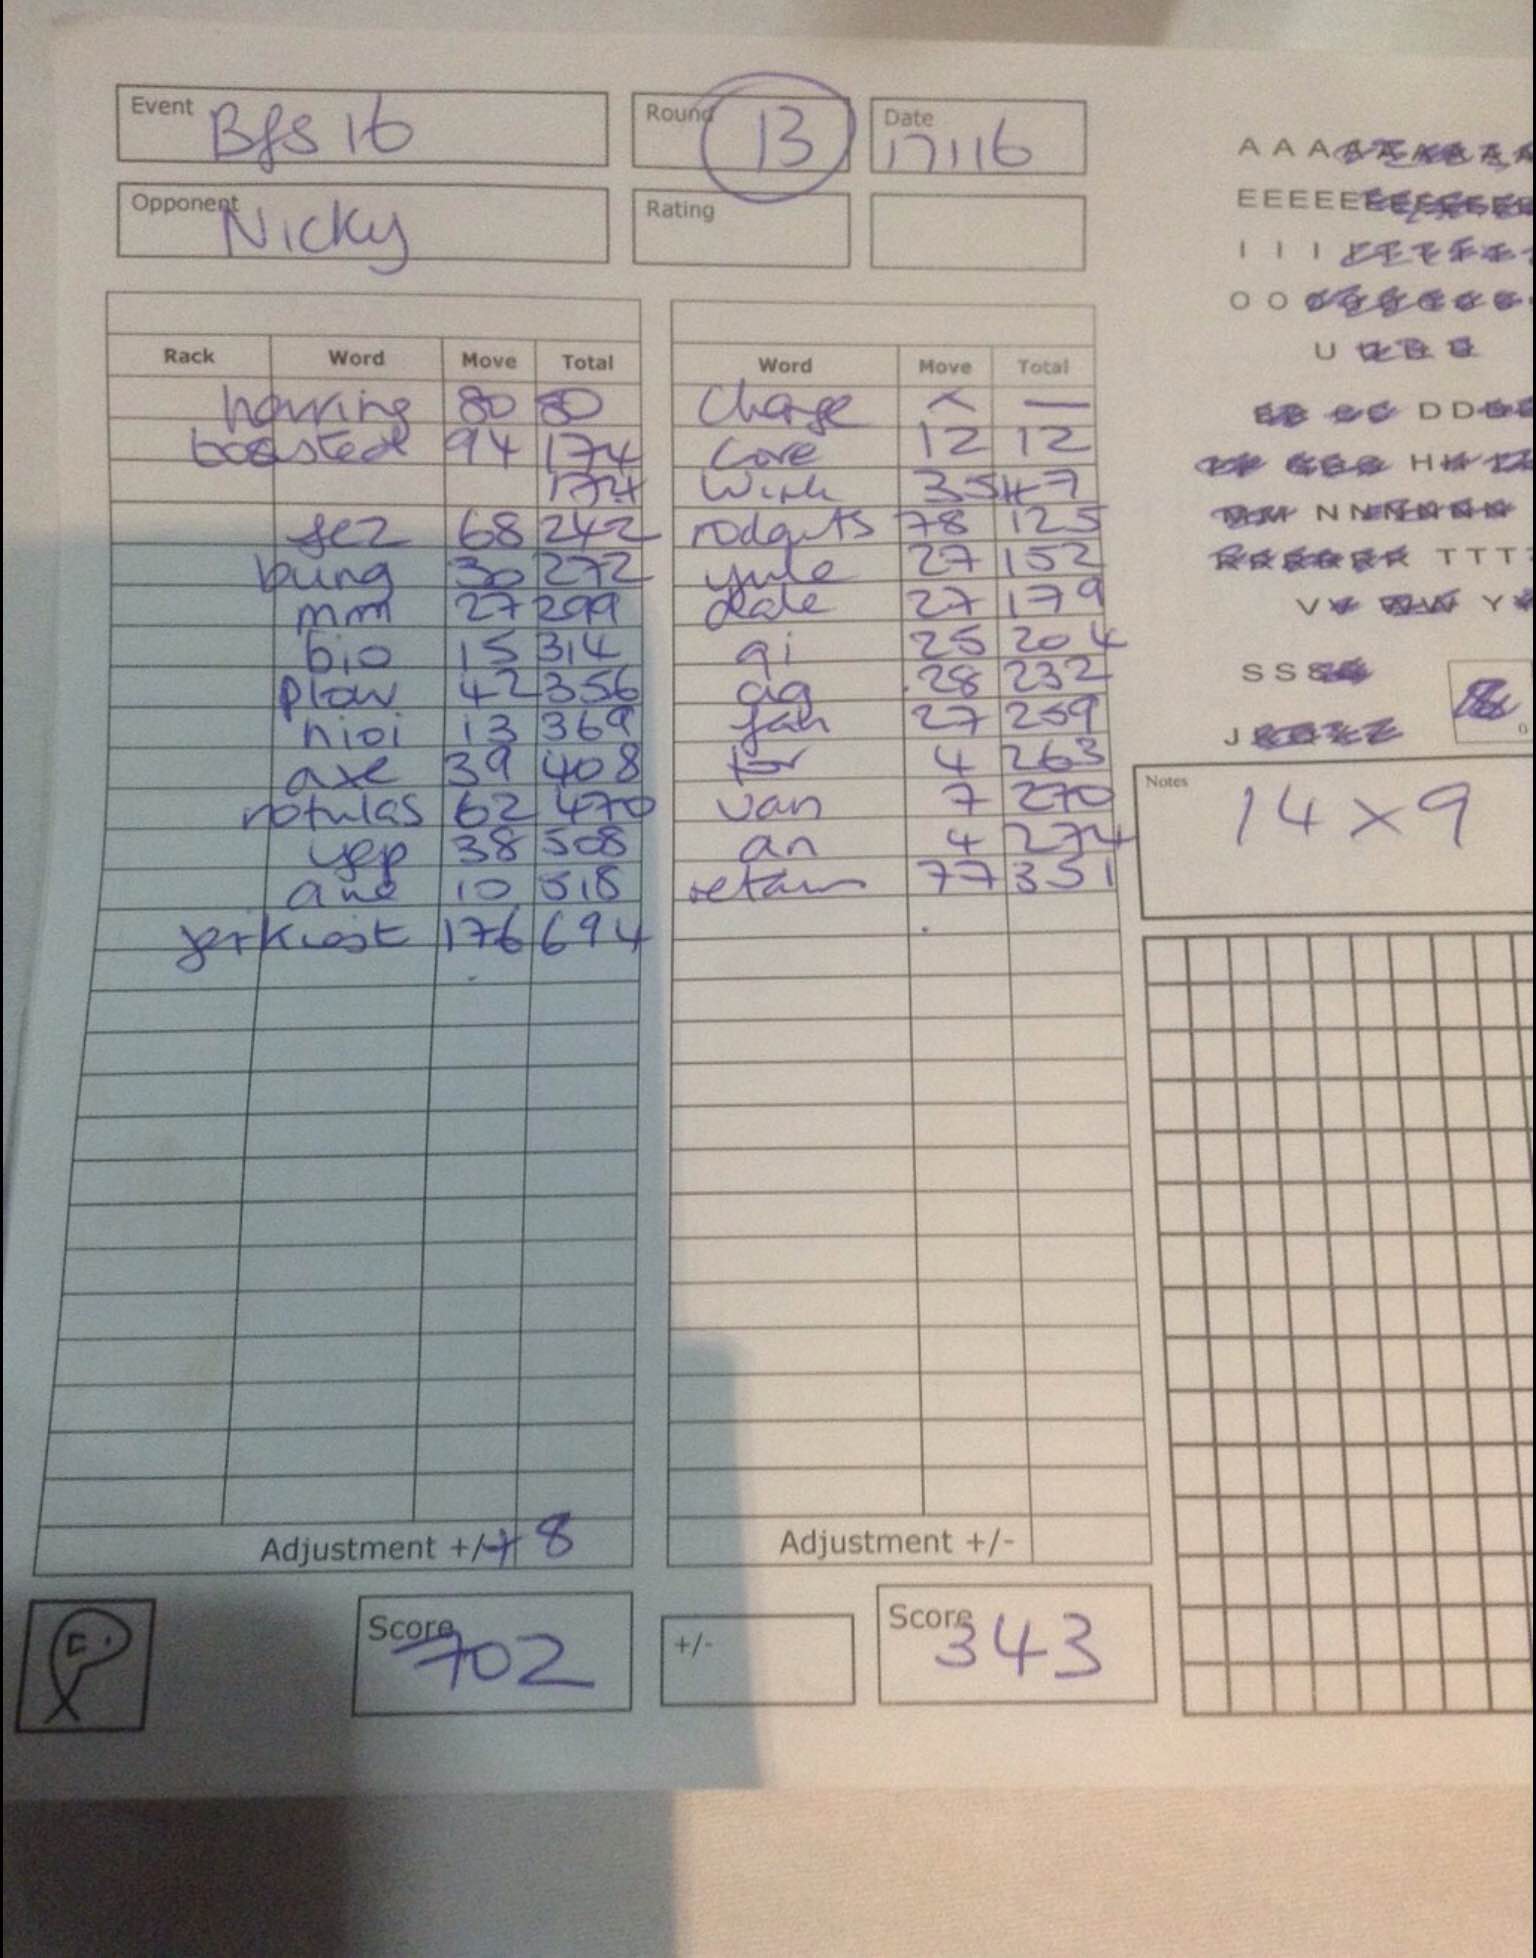 Event Bfs 16
Round 13
Date 17116
Opponent Nicky
Rating
Rack Word Move Total
80 80
boasted 94 174
174
fez 68 242
bung 30 272
mm 27 299
bio 15 314
plow 42 356
nioi 13 369
axe 39 408
rotulas 62 470
yep 38 508
ane 10 518
jerkiest 176 694
Adjustment +/- + 8
Score 702
Word Move Total
Change × —
core 12 12
Wink 35 47
rodguts 78 125
yule 27 152
dale 27 179
qi 25 204
ag 28 232
fah 27 259
tor 4 263
van 7 270
an 4 274
retain 77 351
Adjustment +/-
+/-
Score 343
A A A
E E E E E
I I I
O O
U
D D
H
N N
T T T
V Y
S S
J
Notes
14 x 9